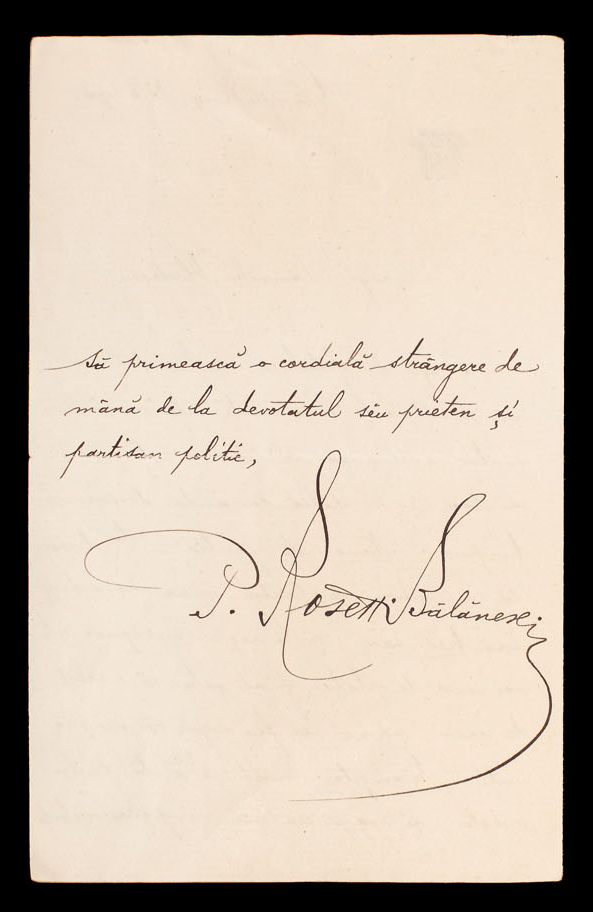 să primească o cordială strângere de
mână de la devotatul sĕu prieten și
partisan politic,
P. Rosetti Bălănescu